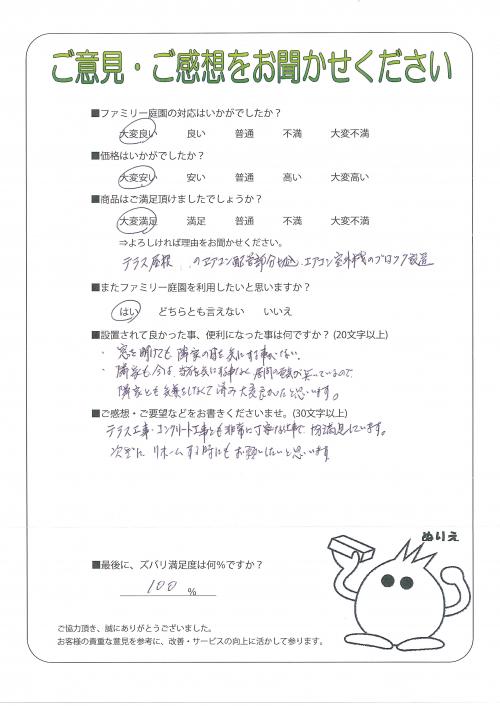 ご意見・ご感想をお聞かせください
■ファミリー庭園の対応はいかがでしたか？
大変良い 良い 普通 不満 大変不満
■価格はいかがでしたか？
大変安い 安い 普通 高い 大変高い
■商品はご満足頂けましたでしょうか？
大変満足 満足 普通 不満 大変不満
⇒よろしければ理由をお聞かせください。
テラス屋根 のエアコン配管部分切込、エアコン室外機のブロック設置
■またファミリー庭園を利用したいと思いますか？
はい どちらとも言えない いいえ
■設置されて良かった事、便利になった事は何ですか？(20文字以上)
・窓を開けても隣家の目を気にする事がない。
・隣家も今は 気に
隣家とも なくて済み大変良かったと思います。
■ご感想・ご要望などをお書きくださいませ。(30文字以上)
テラス工事・コンクリート工事とも非常に丁寧な仕事で 満足しています。
次 リホームする時にもお願いしたいと思います
ぬりえ
■最後に、ズバリ満足度は何％ですか？
100 ％
ご協力頂き、誠にありがとうございました。
お客様の貴重な意見を参考に、改善・サービスの向上に活かして参ります。